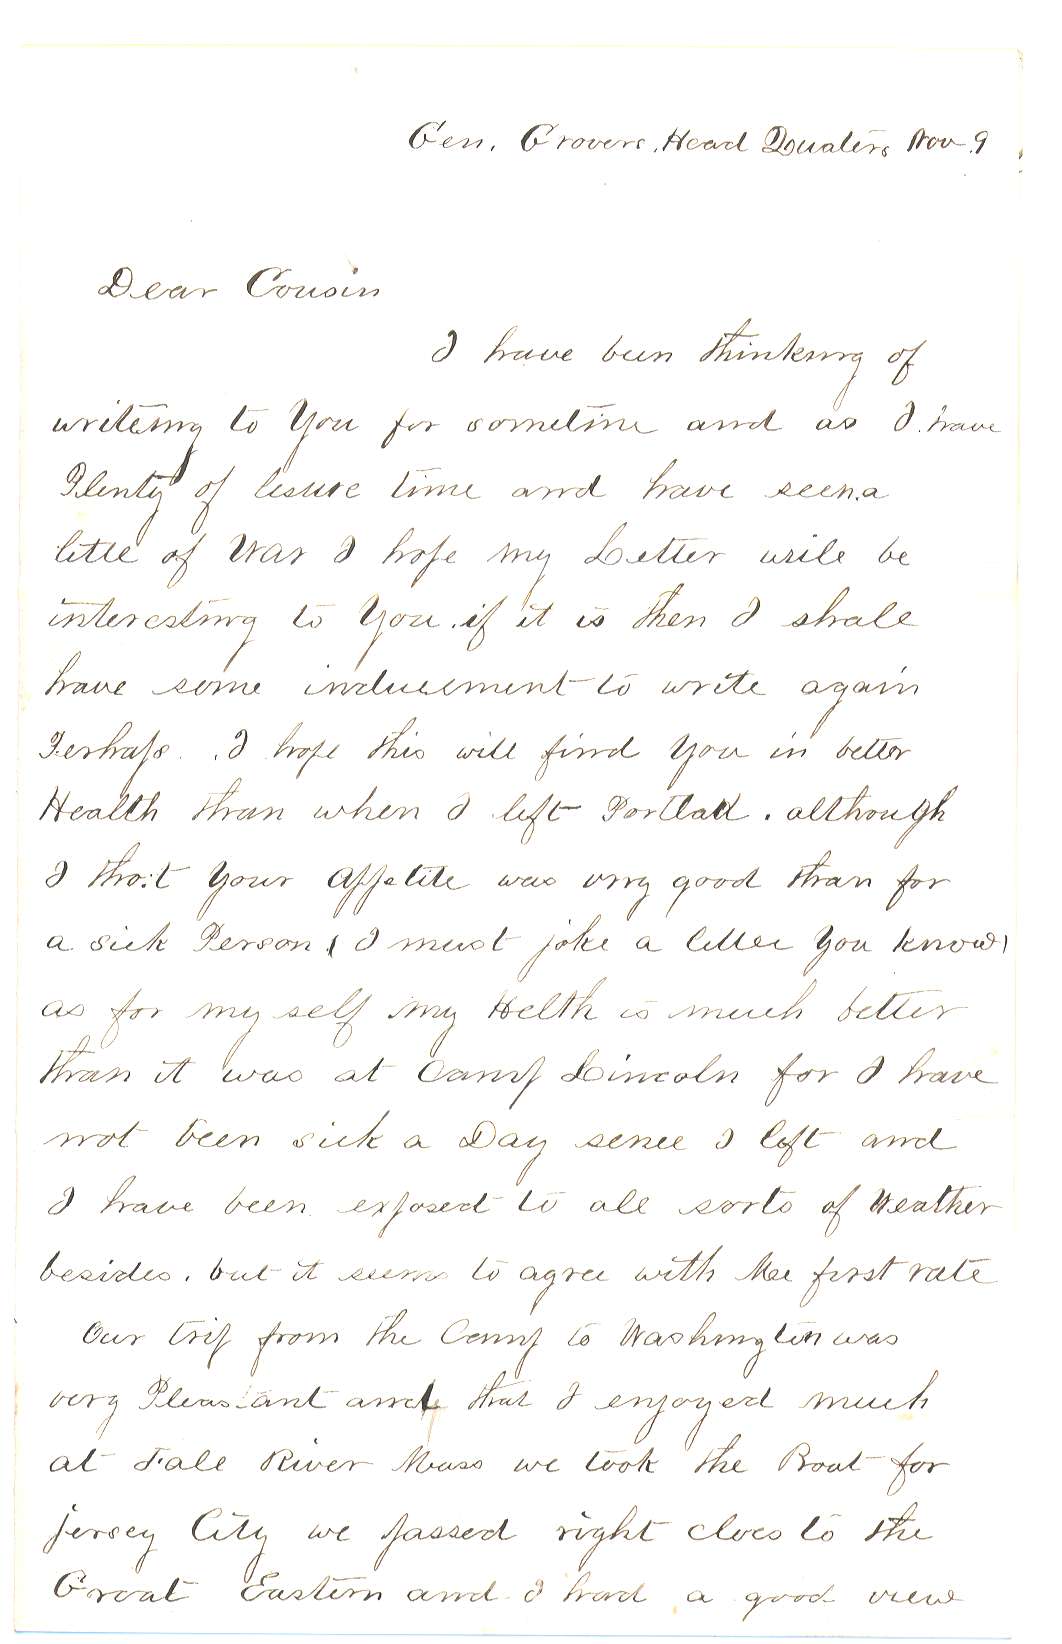 Gen. Grovers. Head Quaters Nov. 9
Dear Cousin
I have been thinking of
writeing to You for sometime and as I have
Plenty of lesure time and have seen a
little of War I hope my Letter will be
interesting to You. if it is then I shall
have some inducement to write again
Perhaps. I hope this will find You in better
Health than when I left Portlad. although
I thot Your Appetite was very good than for
a sick Person. ( I must joke a little You know)
as for my self my Helth is much better
than it was at Camp Lincoln for I have
not been sick a Day sence I left and
I have been exposed to all sorts of Weather
besides. but it seems to agree with Mee first rate
Our trip from the Camp to Washington was
very Pleasant and that I enjoyed much
at Fall River Mass we took the Boat for
jersey City we passed right cloes to the
Great Eastern and I had a good view